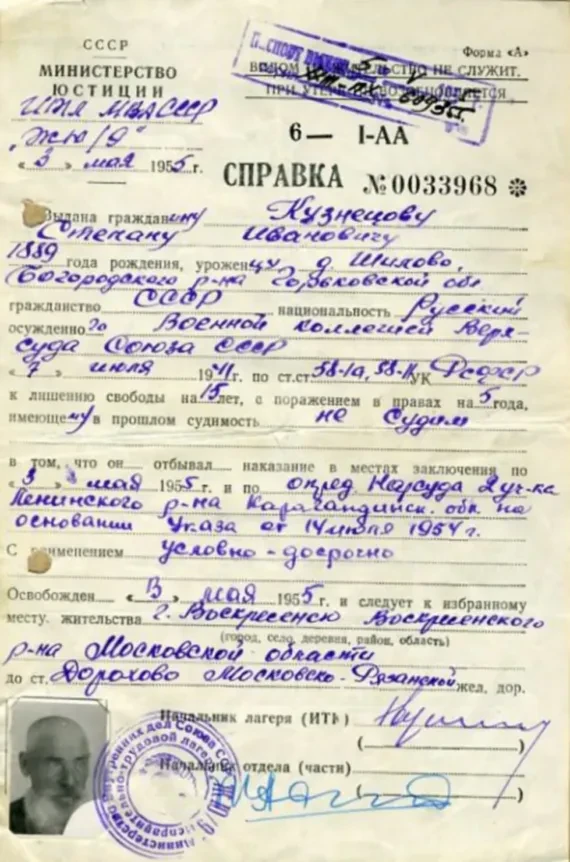 СССР
МИНИСТЕРСТВО
ЮСТИЦИИ
МВД СССР
"ЖЮ/9"
«3» мая 1955 г.
Форма «А»
ВИДОМ НА ЖИТЕЛЬСТВО НЕ СЛУЖИТ.
ПРИ УТЕРЕ НЕ ВОЗОБНОВЛЯЕТСЯ
6— I-АА
СПРАВКА №0033968
Выдана гражданину Кузнецову
Степану Ивановичу
1889 года рождения, уроженцу д. Шилово,
Богородского р-на Горьковской обл
гражданство СССР национальность Русский
осужденного Военной коллегией Вер-
суда Союза СССР
«7» июля 1941 г. по ст.ст. 58-1а, 58-11 УК РСФСР
к лишению свободы на 15 лет, с поражением в правах на 5 года,
имеющему в прошлом судимость не судим
в том, что он отбывал наказание в местах заключения по
«3» мая 1955 г. и по опред. Нарсуда 2 уч-ка
Ленинского р-на Карагандинск. обл. на
основании Указа от 14 июля 1954 г.
С применением условно-досрочно
Освобожден «3» мая 1955 г. и следует к избранному
месту жительства г. Воскресенск Воскресенского
(город, село, деревня, район, область)
р-на Московской области
до ст. Дорохово Московско-Рязанской жел. дор.
Начальник лагеря (ИТК)
Начальник отдела (части)